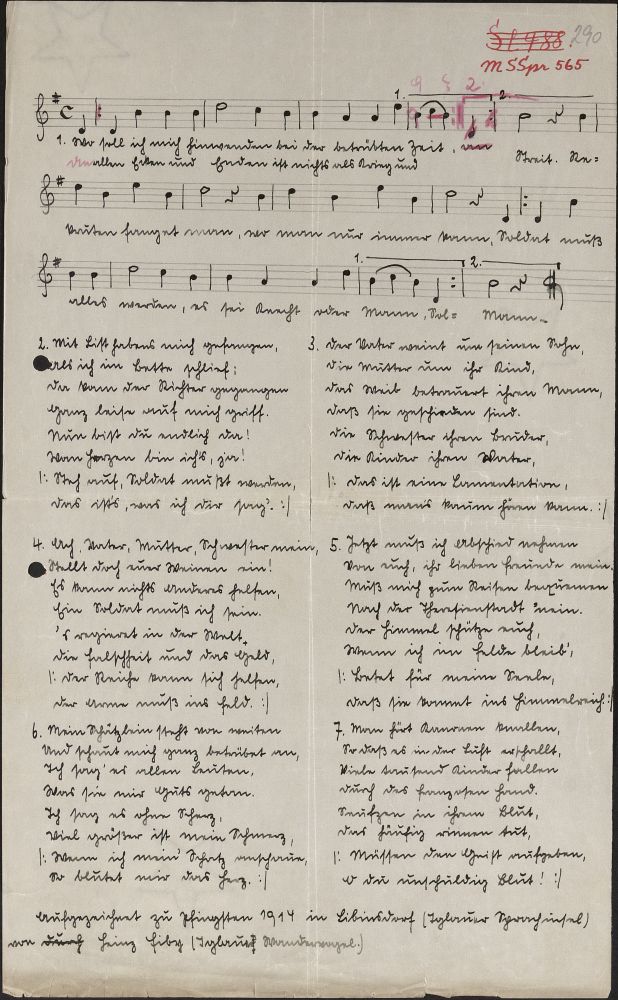 St. 488. 290
MSSpr 565
1. 2.
1. Wo soll ich mich hinwenden bei der betrübten Zeit, an
An allen Ecken und Enden ist nichts als Krieg und Streit. Re=
kruten fanget man, wo man nur immer kann, Soldat muß
1. 2.
alles werden, es sei Knecht oder Mann, Sol= Mann.
2. Mit List habens mich gefangen,
als ich im Bette schlief;
Da kam der Richter gegangen
Ganz leise auf mich griff.
Nun bist du endlich da!
Von Herzen bin ich's, ja!
|: Steh auf, Soldat mußt werden,
Das ist's, was ich dir sag'. :|
3. Der Vater weint um seinen Sohn,
Die Mutter um ihr Kind,
Das Weib betrauert ihren Mann,
Daß sie geschieden sind.
Die Schwester ihren Bruder,
Die Kinder ihren Vater,
|: Das ist eine Lamentation,
Daß man's kaum hören kann. :|
4. Ach, Vater, Mutter, Schwester mein,
Stellt doch euer Weinen ein!
Es kann nichts Anderes helfen,
Ein Soldat muß ich sein.
's regieret in der Welt
Die Falschheit und das Geld,
|: Der Reiche kann sich helfen,
Der Arme muß ins Feld. :|
5. Jetzt muß ich Abschied nehmen
Von euch, ihr lieben Freunde mein.
Muß mich zum Reisen bequemen
Nach der Theresienstadt 'nein.
Der Himmel schütze euch,
Wenn ich im Felde bleib',
|: Betet für meine Seele,
Daß sie kommt ins Himmelreich :|
6. Mein Schätzlein steht von weiten
Und schaut mich ganz betrübet an,
Ich sag' es allen Leuten,
Was sie mir Guts getan.
Ich sag es ohne Scherz,
Viel größer ist mein Schmerz,
|: Wenn ich mein' Schatz anschaue,
So blutet mir das Herz. :|
7. Man hört Kanonen knallen,
So daß es in der Luft erschallt,
Viele tausend Kinder fallen
Durch des Franzosen Hand.
Seufzen in ihrem Blut,
Das häufig rinnen tut,
|: Müssen den Geist aufgeben,
O du unschuldig Blut! :|
Aufgezeichnet zu Pfingsten 1914 in Libinsdorf (Iglauer Sprachinsel)
von durch Heinz Fiby (Iglauer Wandervogel.)